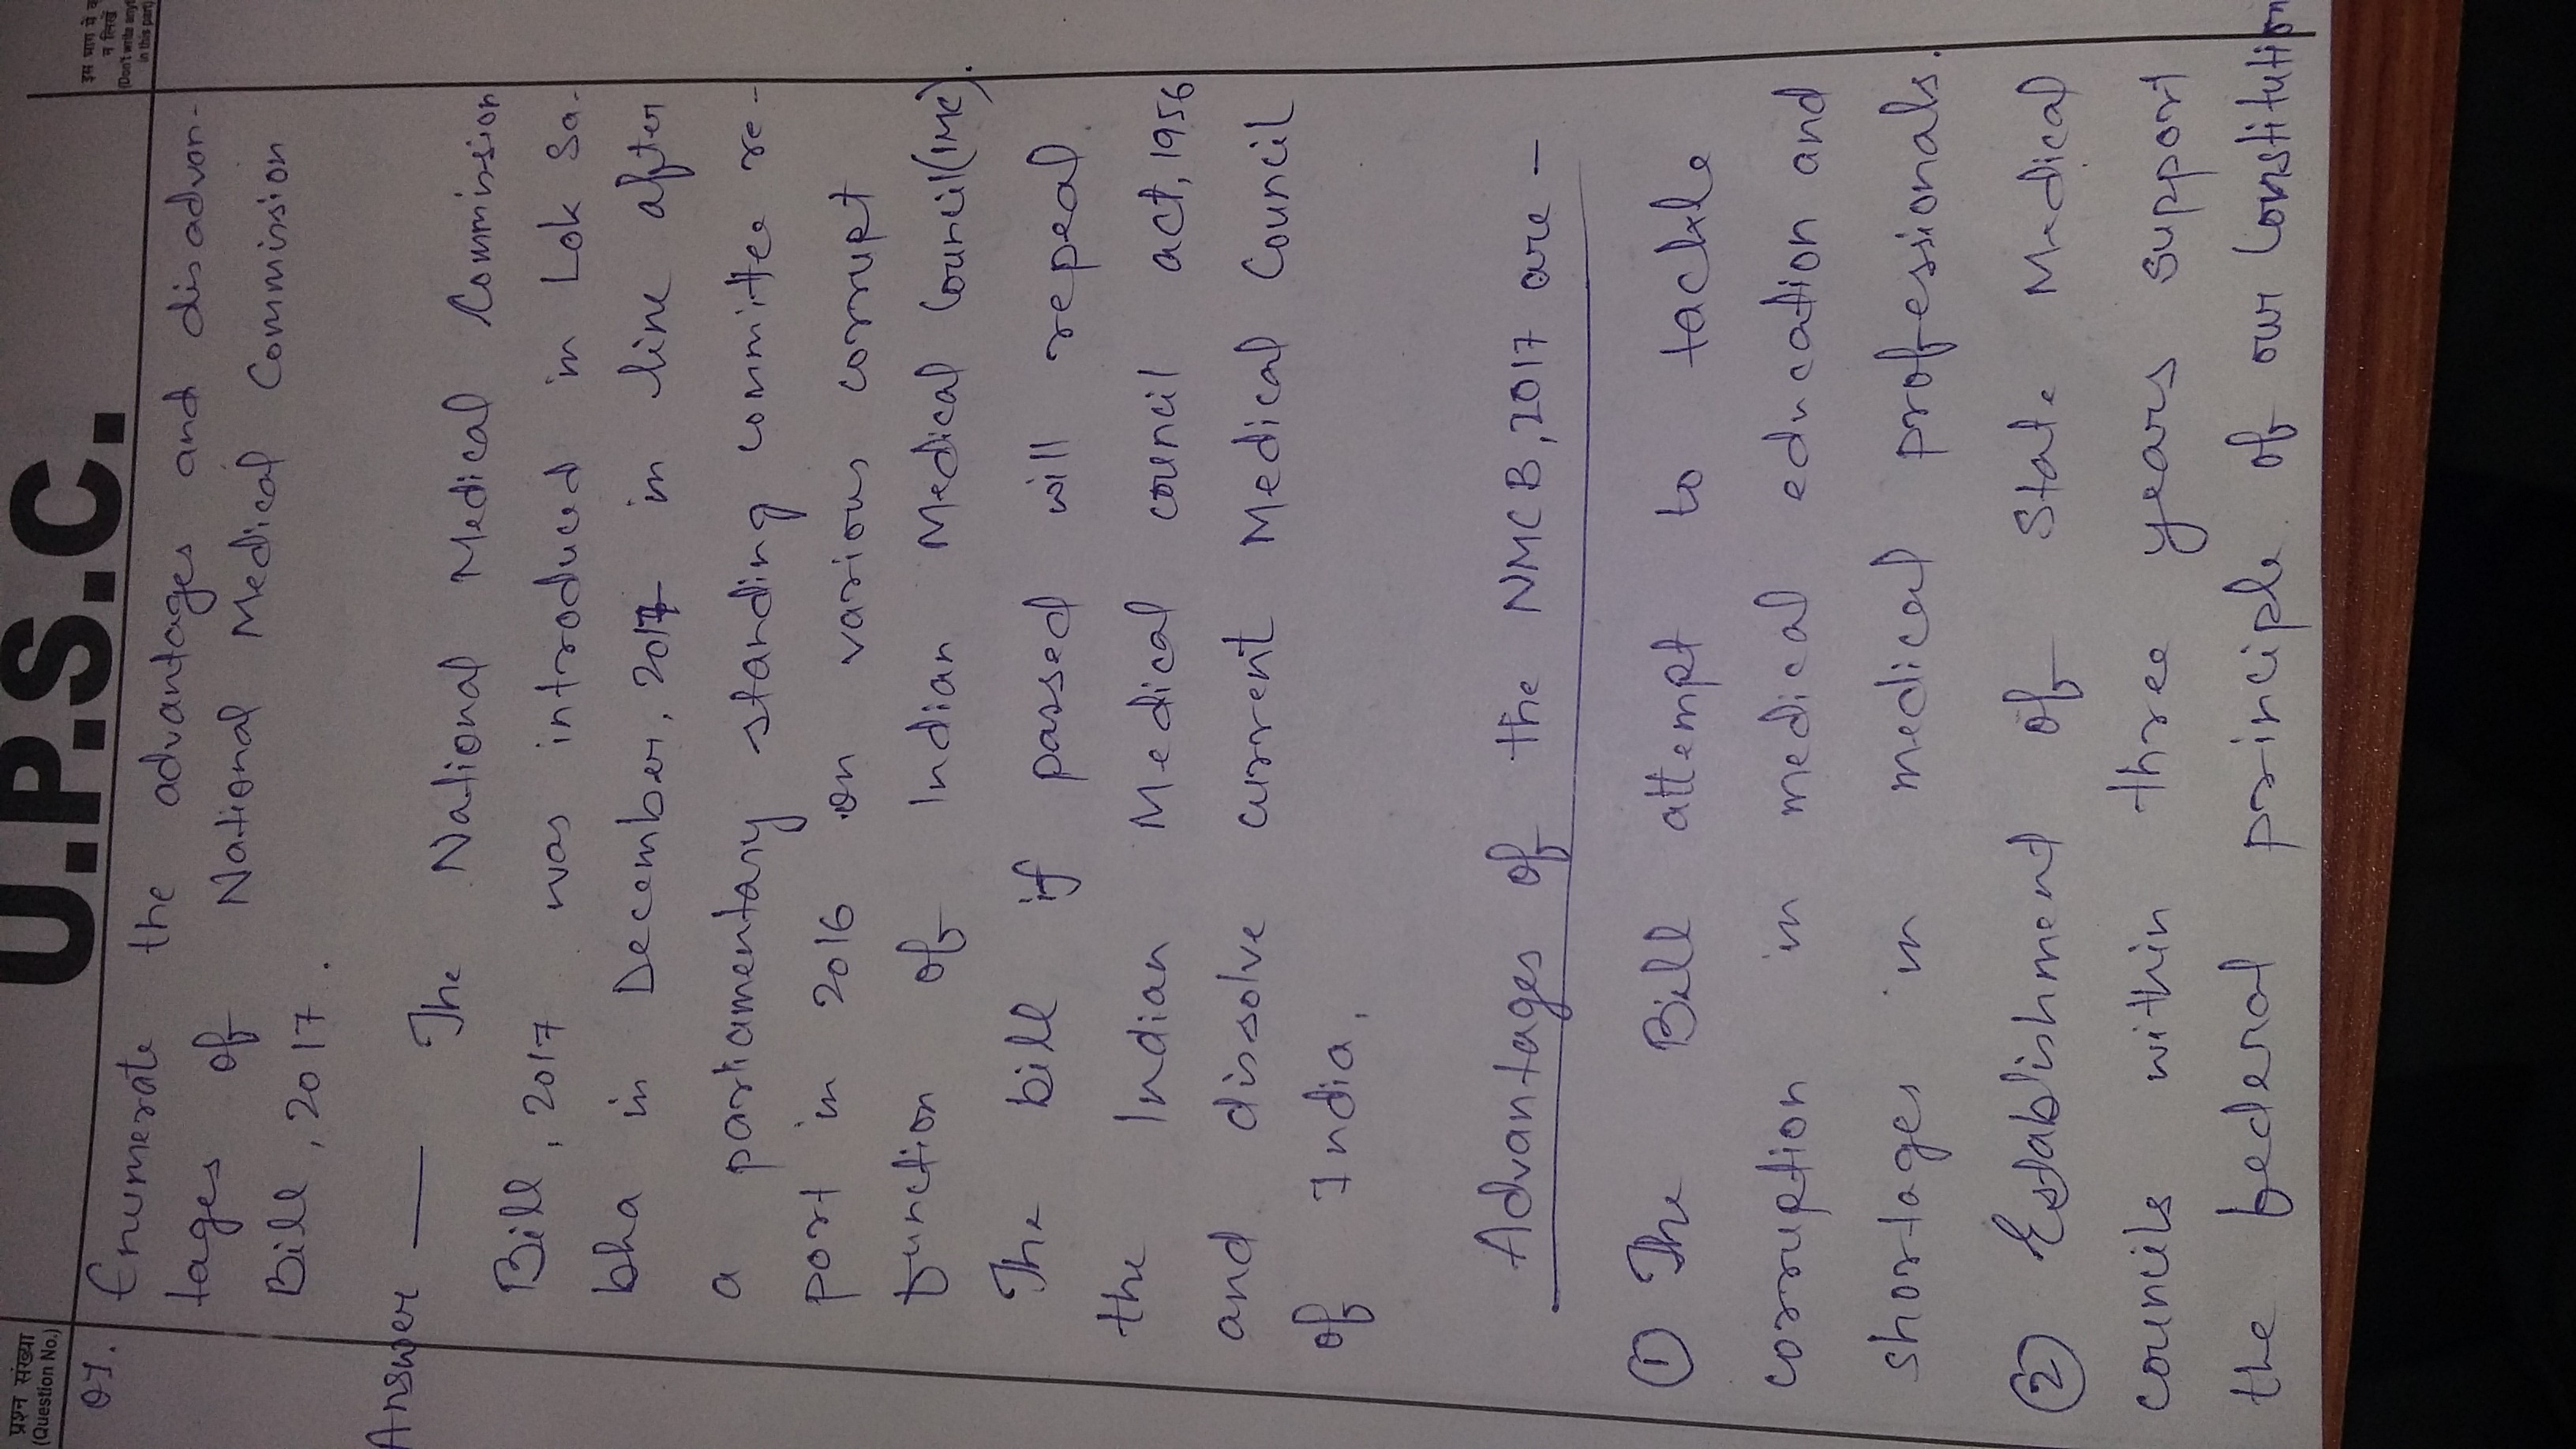 U.P.S.C.
प्रश्न संख्या
(Question No.)
इस भाग में
न लिखें
(Don't write any
in this part)
Q1. Enumerate the advantages and disadvan-
tages of National Medical Commission
Bill, 2017.
Answer — The National Medical Commission
Bill, 2017 was introduced in Lok Sa-
bha in December, 2017 in line after
a parliamentary standing committee re-
port in 2016 on various corrupt
function of Indian Medical Council(IMC).
The bill if passed will repeal
the Indian Medical council act, 1956
and dissolve current Medical Council
of India.
Advantages of the NMCB, 2017 are -
① The Bill attempt to tackle
corruption in medical education and
shortages in medical professionals.
② Establishment of State Medical
councils within three years support
the federal principle of our constitution